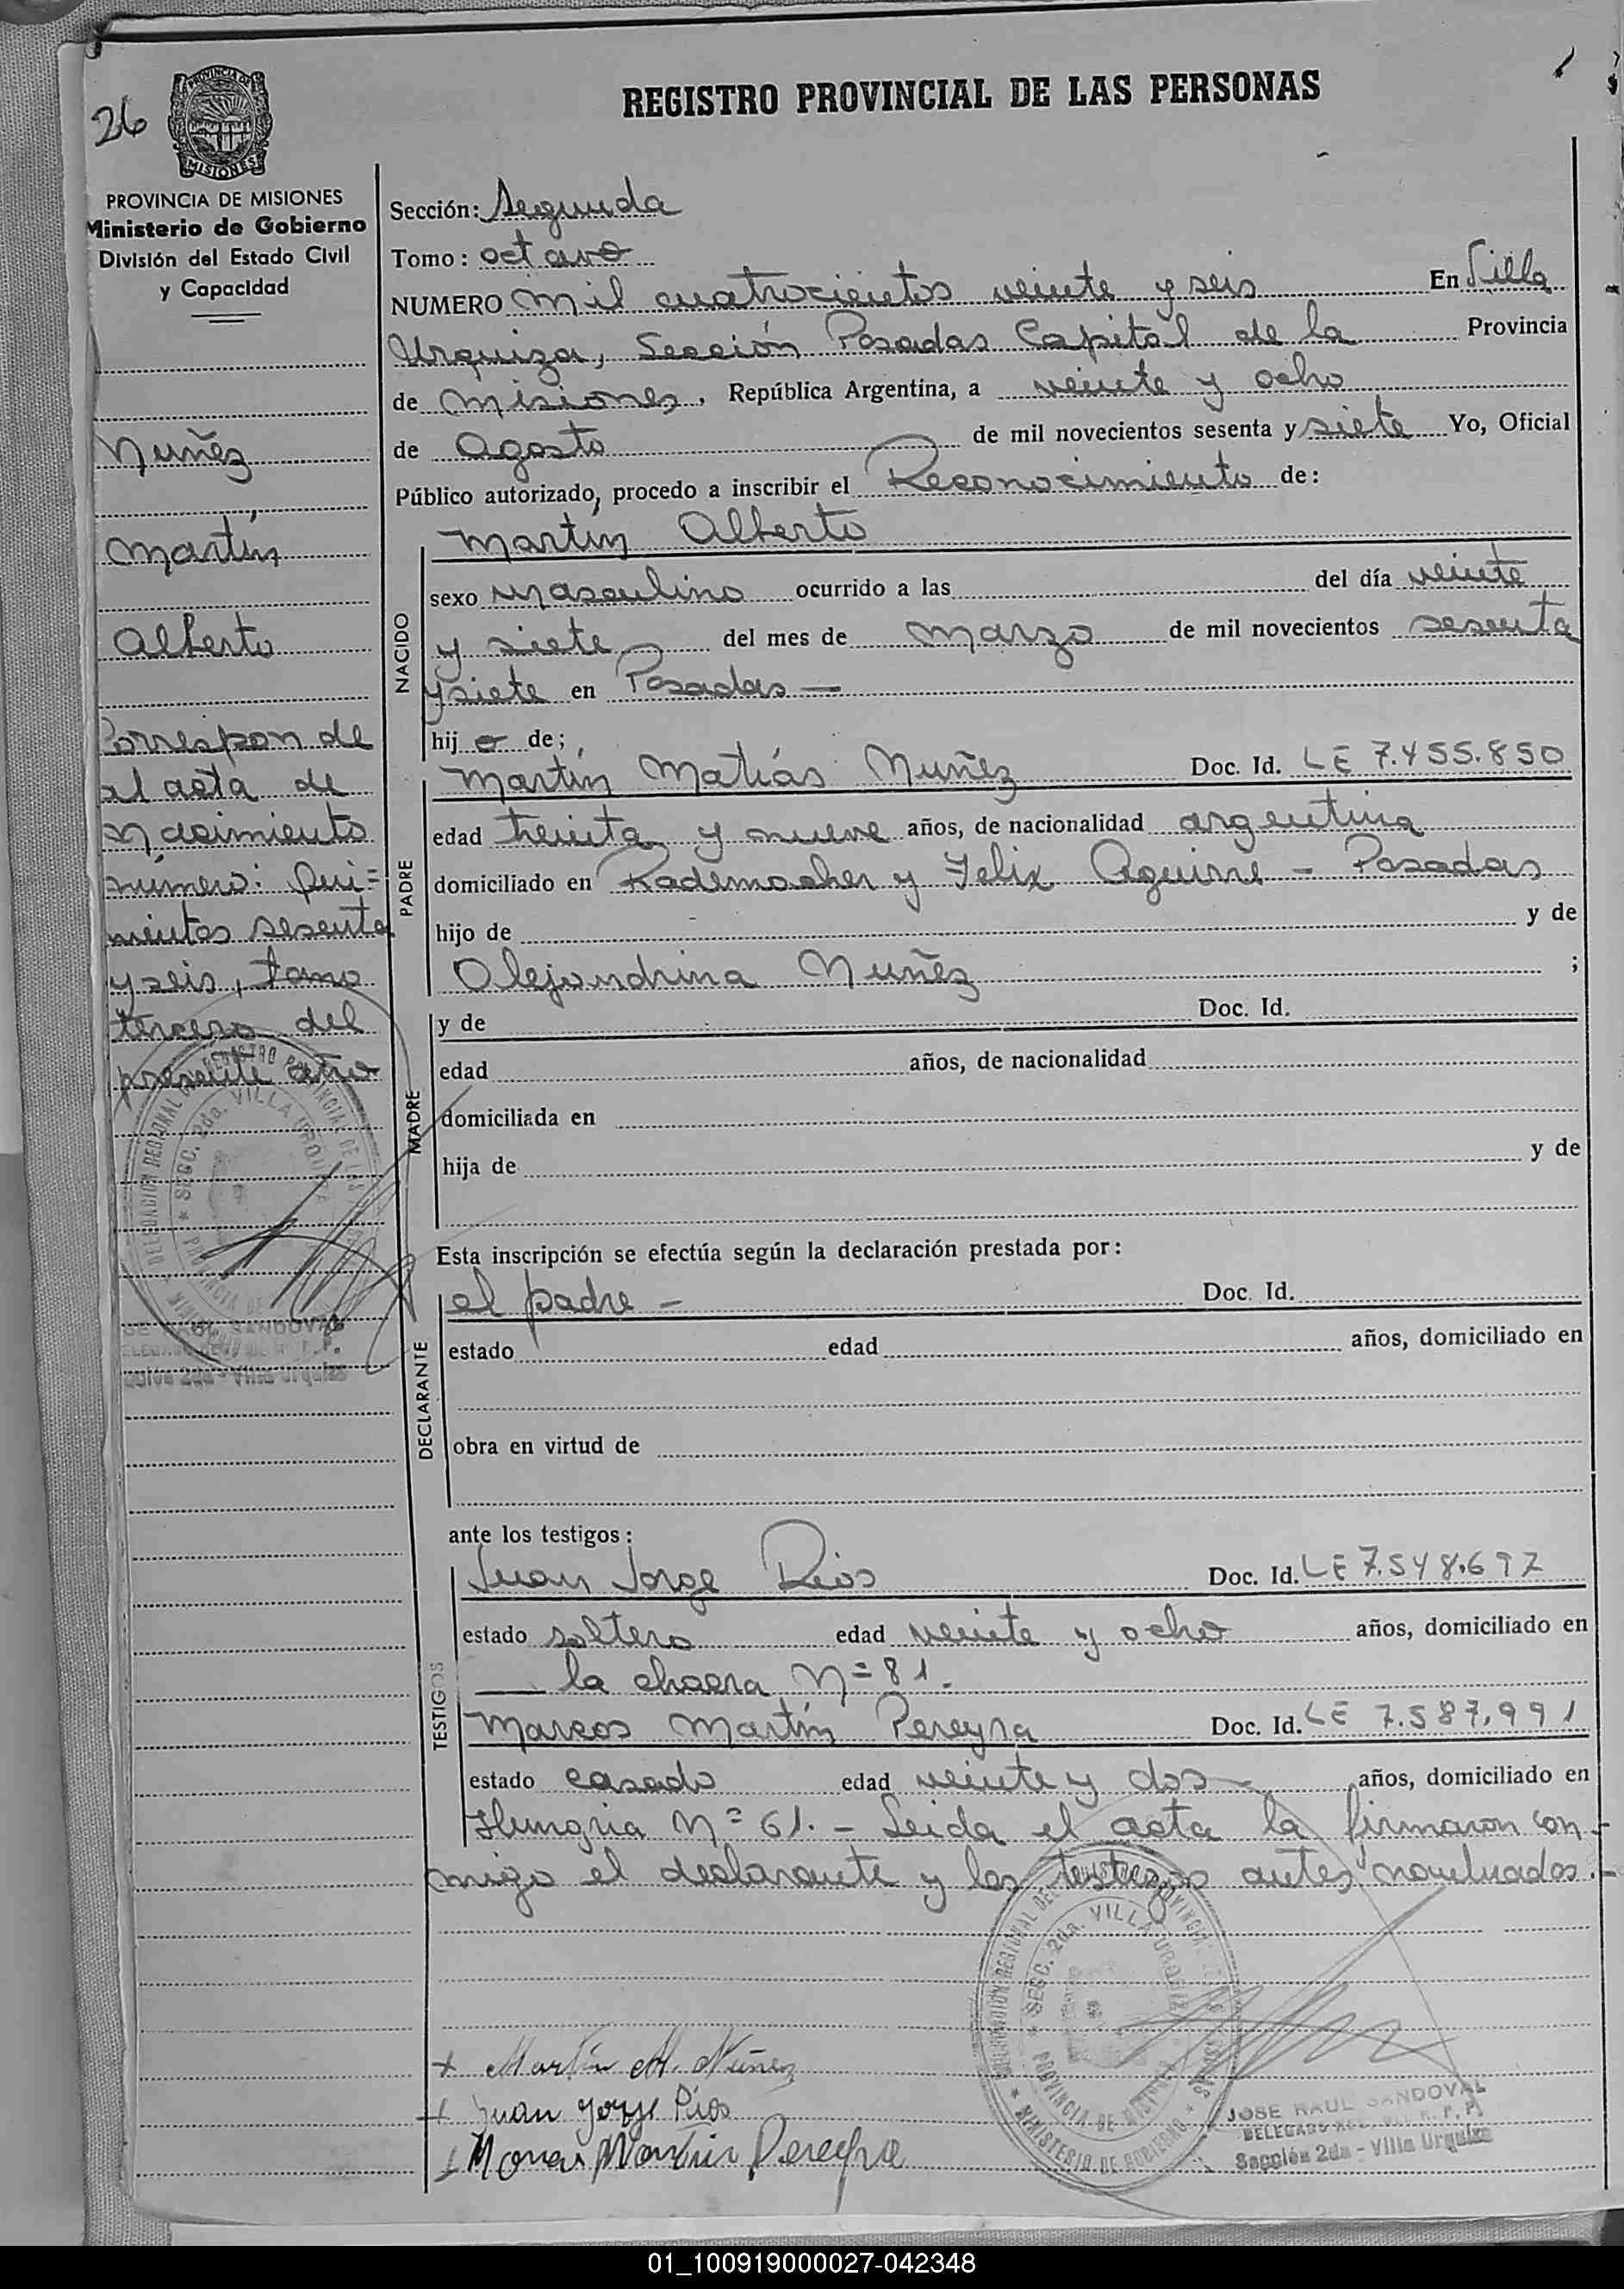 26
PROVINCIA DE
MISIONES
PROVINCIA DE MISIONES
Ministerio de Gobierno
División del Estado Civil
y Capacidad
Nuñez
Martín
Alberto
Correspon de
al acta de
nacimiento
número: Qui=
nientos sesenta
y seis, tomo
tercero del
presente año
REGISTRO PROVINCIAL DE LAS PERSONAS
Sección: Segunda
Tomo: octavo
NUMERO mil cuatrocientos veinte y seis En Villa
Urquiza, Sección Posadas Capital de la Provincia
de Misiones, República Argentina, a veinte y ocho
de Agosto de mil novecientos sesenta y siete Yo, Oficial
Público autorizado, procedo a inscribir el Reconocimiento de:
NACIDO
Martín Alberto
sexo masculino ocurrido a las del día veinte
y siete del mes de marzo de mil novecientos sesenta
y siete en Posadas —
hij o de;
PADRE
Martín Matías Nuñez Doc. Id. LE 7.455.850
edad treinta y nueve años, de nacionalidad argentina
domiciliado en Rademacher y Felix Aguirre - Posadas
hijo de y de
Alejandrina Nuñez ;
MADRE
y de Doc. Id.
edad años, de nacionalidad
domiciliada en
hija de y de
Esta inscripción se efectúa según la declaración prestada por:
DECLARANTE
el padre - Doc. Id.
estado edad años, domiciliado en
obra en virtud de
ante los testigos:
TESTIGOS
Juan Jorge Rios Doc. Id. LE 7.548.697
estado soltero edad veinte y ocho años, domiciliado en
la chacra Nº 81.
Marcos Martín Pereyra Doc. Id. LE 7.587.991
estado casado edad veinte y dos - años, domiciliado en
Hungria Nº 61. - Leida el acta la firmaron con-
migo el declarante y los testigos antes nombrados.-
+ Martín M. Núñez
+ Juan Jorge Rios
+ Marcos Martin Pereyra
DELEGACION REGIONAL DEL REGISTRO PROVINCIAL DE LAS PERSONAS
SECC. 2da. VILLA URQUIZA
PROVINCIA DE MISIONES
MINISTERIO DE GOBIERNO
JOSE RAUL SANDOVAL
Sección 2da - Villa Urquiza
01_100919000027-042348